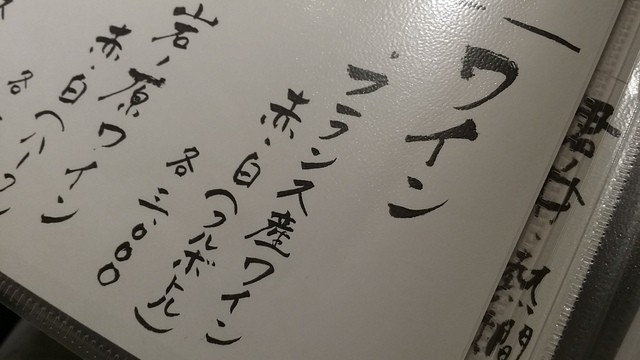 ワイン
フランス産ワイン
赤、白(フルボトル)
各 三、000
岩ノ原ワイン
赤、白(ハーフ
各